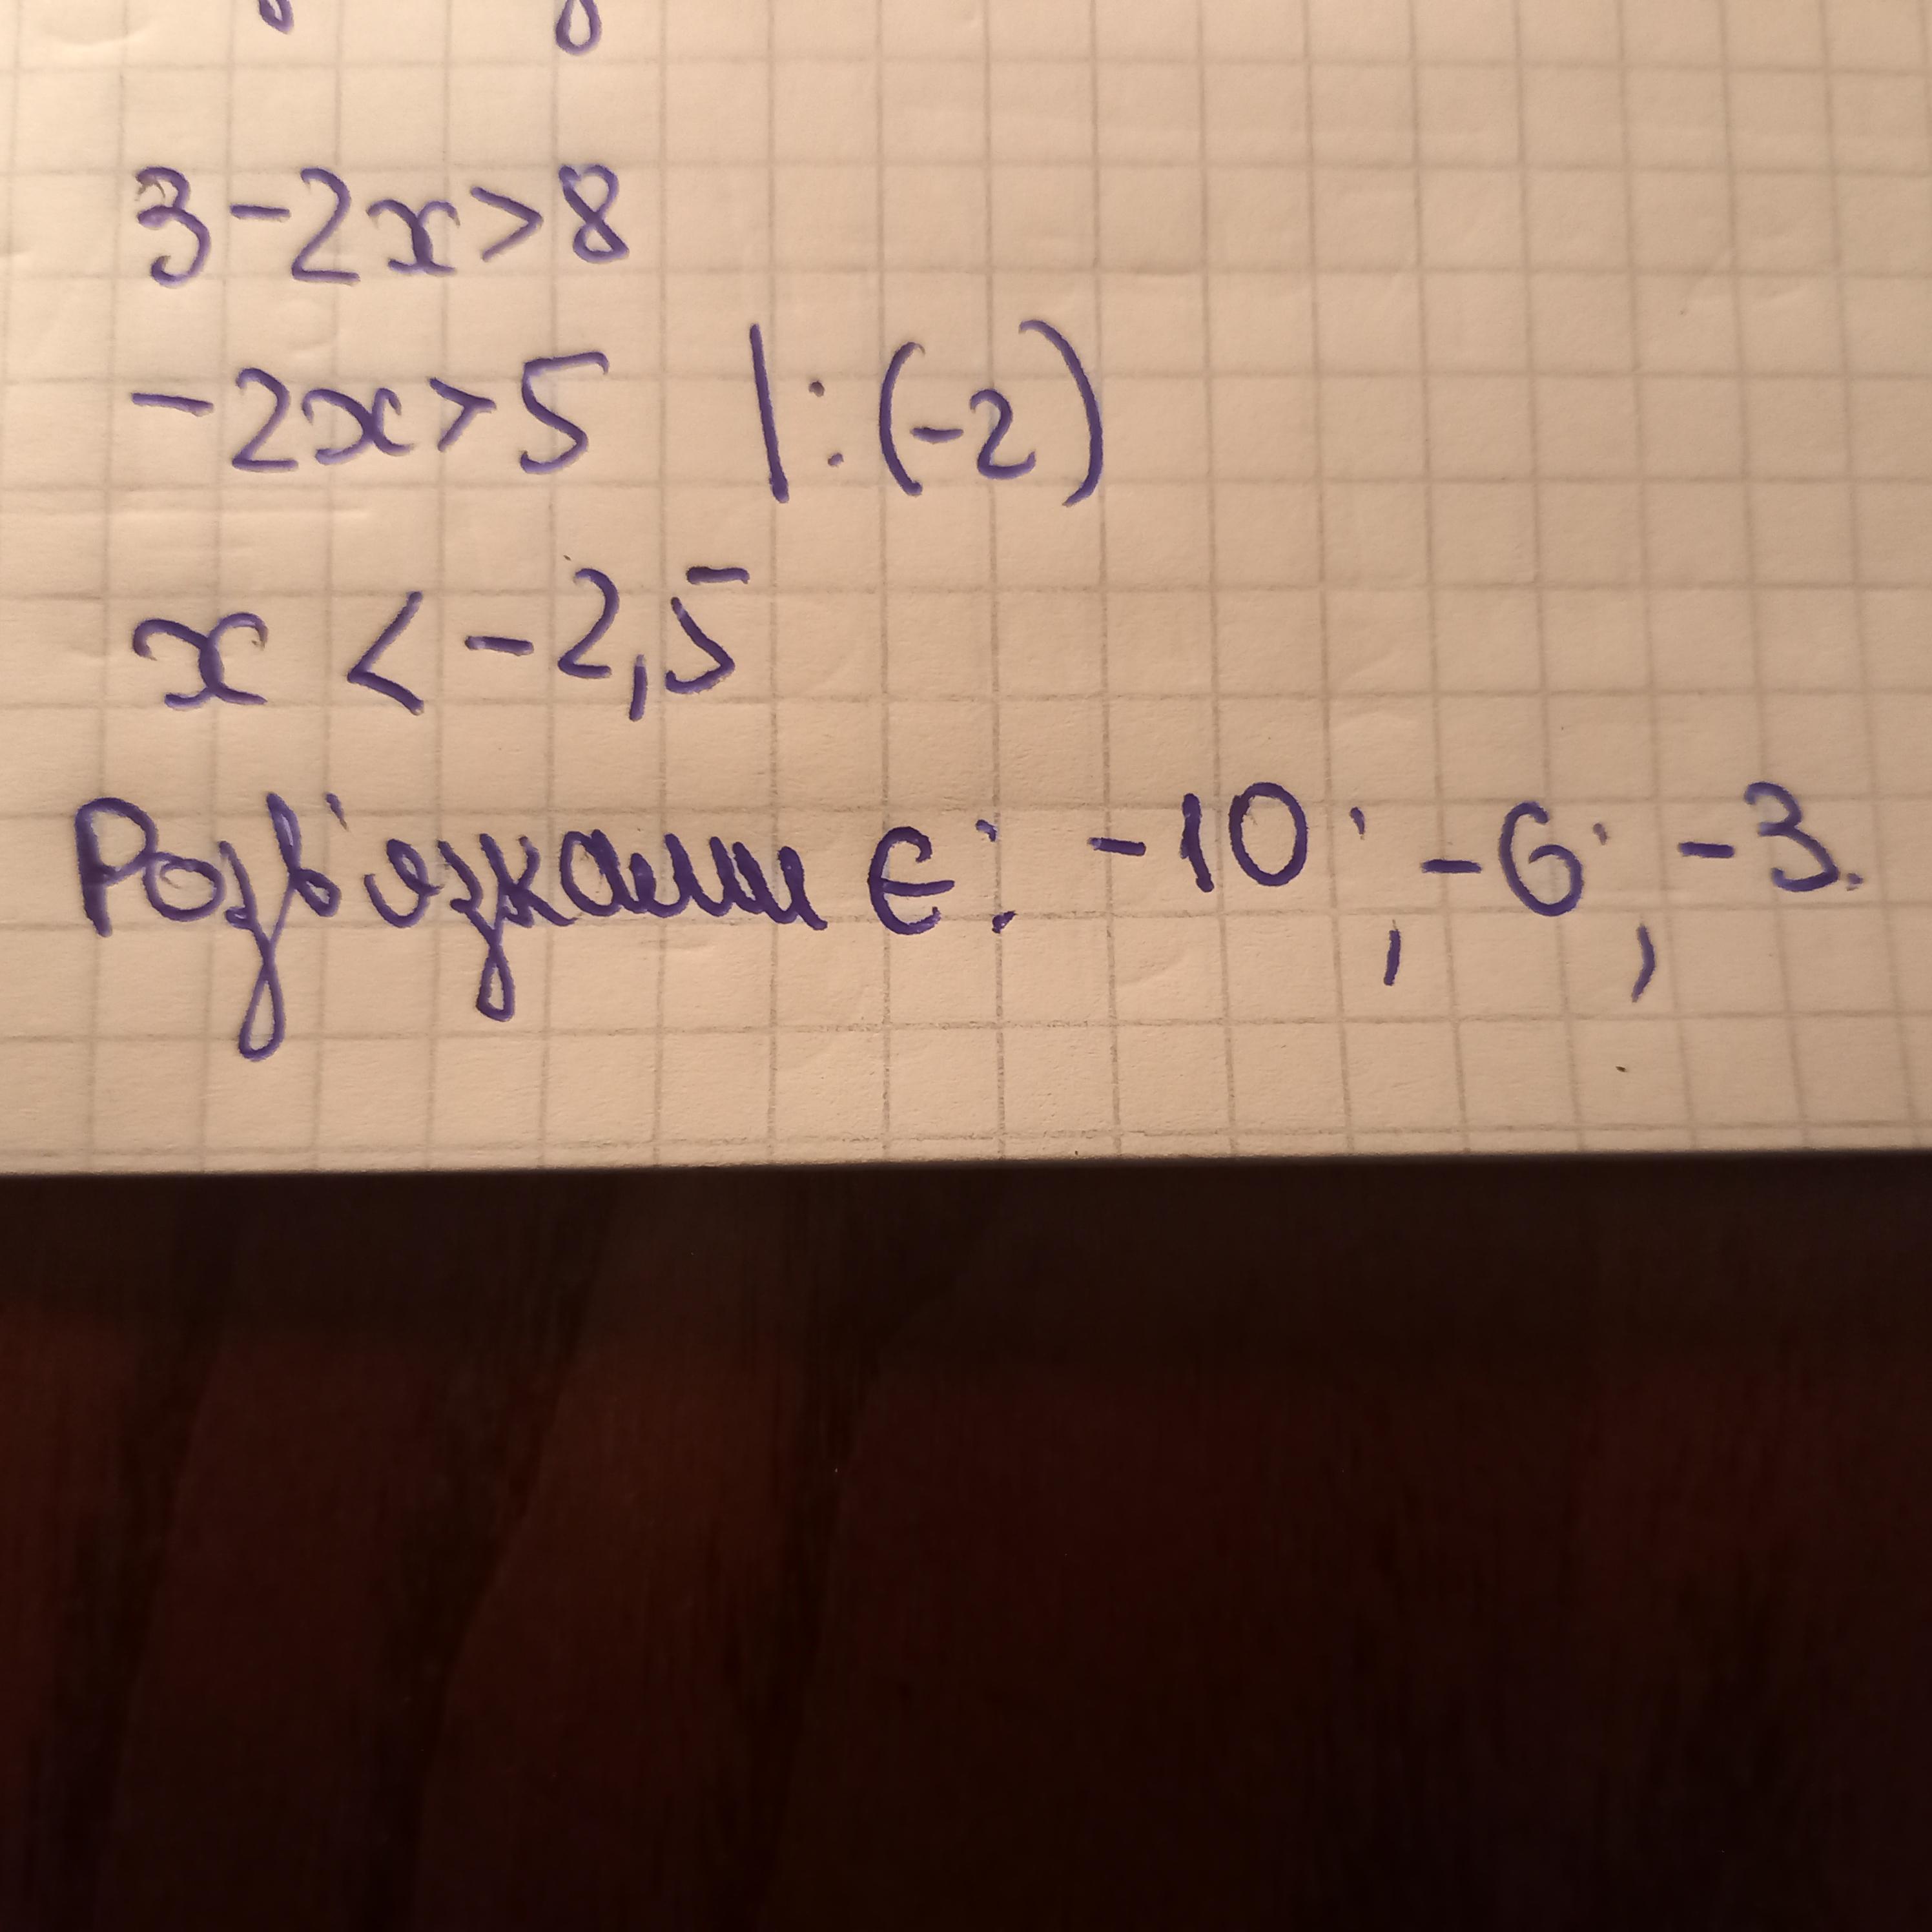 3-2x>8
-2x>5 |:(-2)
x < -2,5
Розв'язками є: -10; -6; -3.